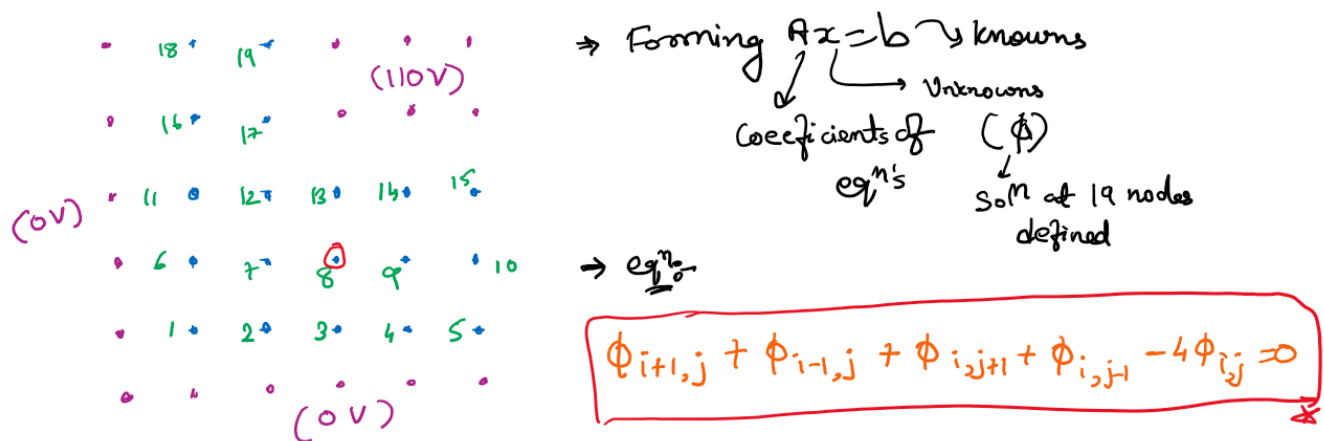 18 19
(110V)
16 17
11 12 13 14 15
(0V)
6 7 8 9 10
1 2 3 4 5
(0V)
⇒ Forming Ax=b → knowns
Unknowns
Coeeficients of (ϕ)
eqⁿ's
Solⁿ at 19 nodes
defined
→ eqⁿ:-
ϕ_{i+1,j} + ϕ_{i-1,j} + ϕ_{i,j+1} + ϕ_{i,j-1} - 4ϕ_{i,j} = 0